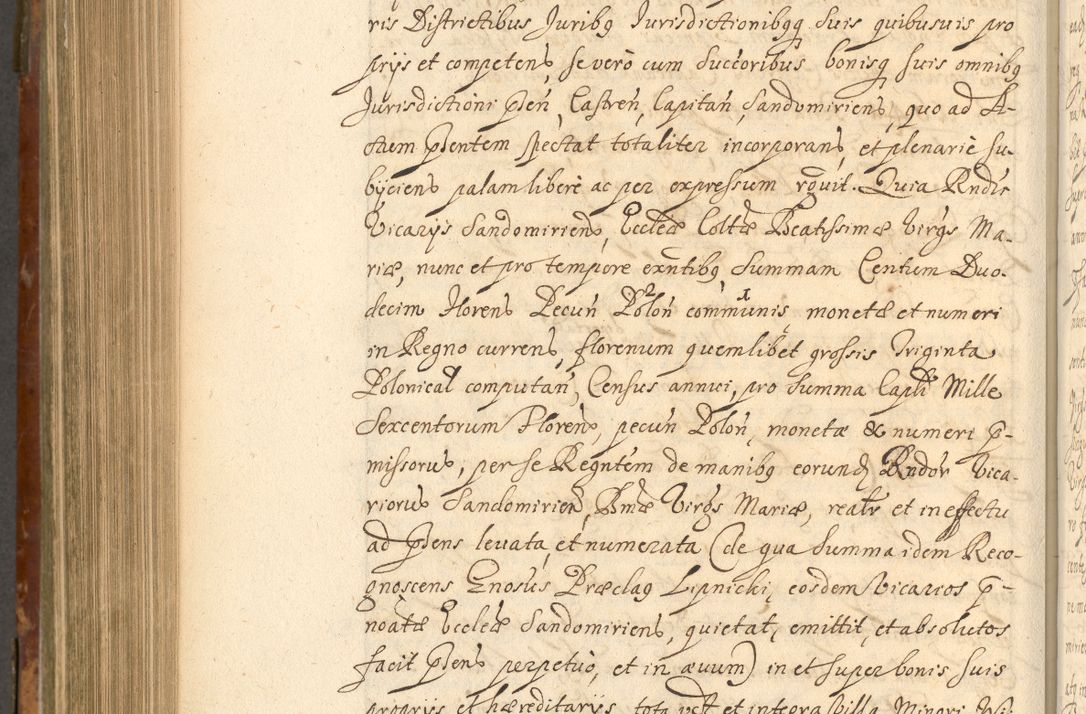 ris Districtibus Juribꝫ Jurisdictionibꝫqꝫ suis quibusuis pro
prijs et competens, se verò cum Suctoribus bonisqꝫ suis omnibꝫ
Jurisdictioni p̃sen, Castren, Capitan, Sandomiriens, quo ad A-
ctum p̃sentem spectat totaliter incorporans, et plenariè su-
bijciens palam liberè ac per expressum rg̃vit. Quia Rndis
Vicarijs Sandomiriens, Eccl̃æ Coltæ Beatissimæ Virgs Ma-
riæ, nunc et pro tempore exñtibꝫ Summam Centum Duo-
decim Florens Pecun Polon communis monetæ et numeri
in Regno currens, florenum quemlibet grossis Triginta
Polonical computan, Census annui, pro Summa Capli Mille
Sexcentorum Florens, pecun Polon, monetæ & numeri p̃-
missorus, per se Regntem de manibꝫ eorund Rndor Vica-
riorus Sandomirien, Bmæ Virgs Mariæ, realr et in effectu
ad p̃sens levata, et numerata (de qua Summa idem Reco-
gnoscens Gnosus Præclaꝫ Lipnicki, eosdem Vicarios p̃-
noatæ Eccleæ Sandomiriens, quietat, emittit, et absolutos
facit p̃sens perpetuò, et in ævum) in et super bonis suis
proprijs et hæreditarijs, tota et integra Villa Minori